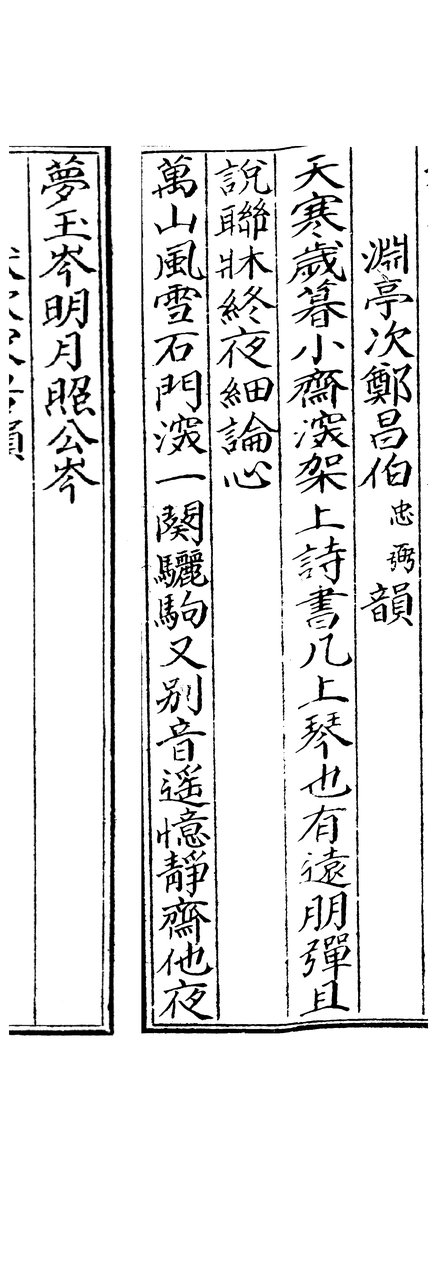 淵亭次鄭昌伯忠弼韻
天寒歲暮小齋深架上詩書几上琴也有遠朋彈且
說聯牀終夜細論心
萬山風雪石門深一闋驪駒又別音遥憶靜齋他夜
夢玉岑明月照公岑